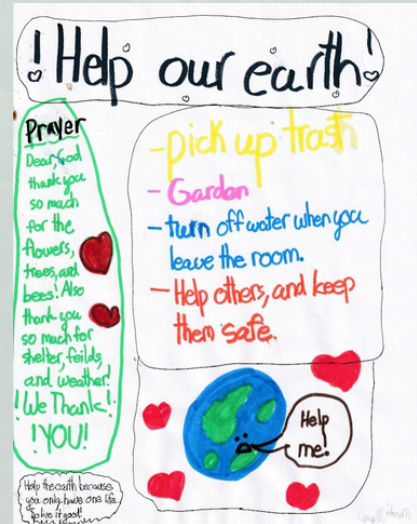 ! Help our earth!
Prayer
Dear God
thank you
so much
for the
flowers,
trees, and
bees! Also
thank you
so much for
shelter, feilds,
and weather!
! We Thank !
! YOU!
-pick up trash
- Garden
- turn off water when you
leave the room.
- Help others, and keep
them safe.
Help
me!
Help the earth because
you only have one life
so live it good!